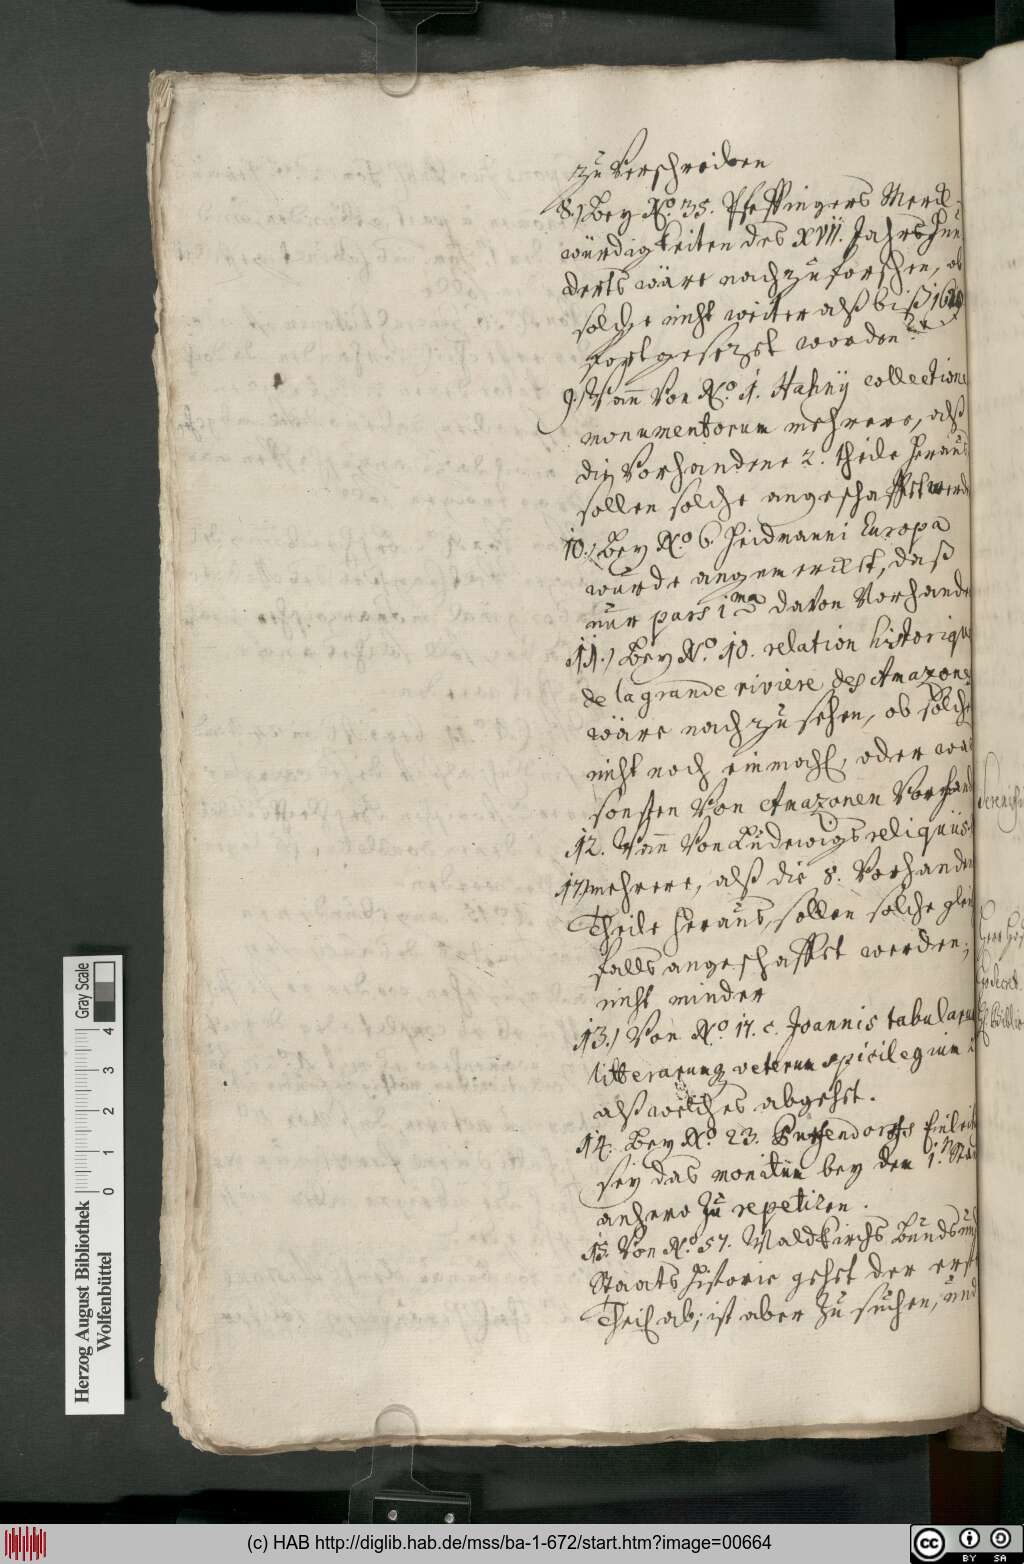 zu verschreiben
8.) Bey No. 35. Pfeffingers Merck-
würdigkeiten des XVII. Jahrhun
derts wäre nachzuforschen, ob
solche nicht weiter alß biß
fortgesezt worden.
9.) Wann von No. 1. Hahnij collectione
monumentorum mehrere, alß
die vorhandene 2. theile heraus
sollen solche angeschafft werd
10.) Bey No. 6 Heidmanni Europa
wurde angemerckt, daß
nur pars 1ma davon vorhande
11.) Bey No. 10. relation historiqu
de la grande riviere des Amazones
wäre nachzusehen, ob solche
nicht noch einmahl, oder was
sonsten von Amazonen vorhand
12. Wann von Ludewigs reliquiis
17) mehrere, alß die 8. vorhanden
Theile heraus, sollen solche glei
falls angeschafft werden;
nicht minder
13.) Von No. 17. c. Joannis tabularum
litterarumq veterum spicilegium
alß welches abgehet.
14. Bey No. 23. Puffendorffs Einleit
sey das monitum bey dem 1.
anhero zu repetiren.
15. Von No. 57. Waldkirchs Bunds und
Staats Historie gehet der erste
Theil ab; ist aber zu suchen, und
Herzog August Bibliothek
Wolfenbüttel
Gray Scale
0 1 2 3 4
(c) HAB http://diglib.hab.de/mss/ba-1-672/start.htm?image=00664
cc BY SA